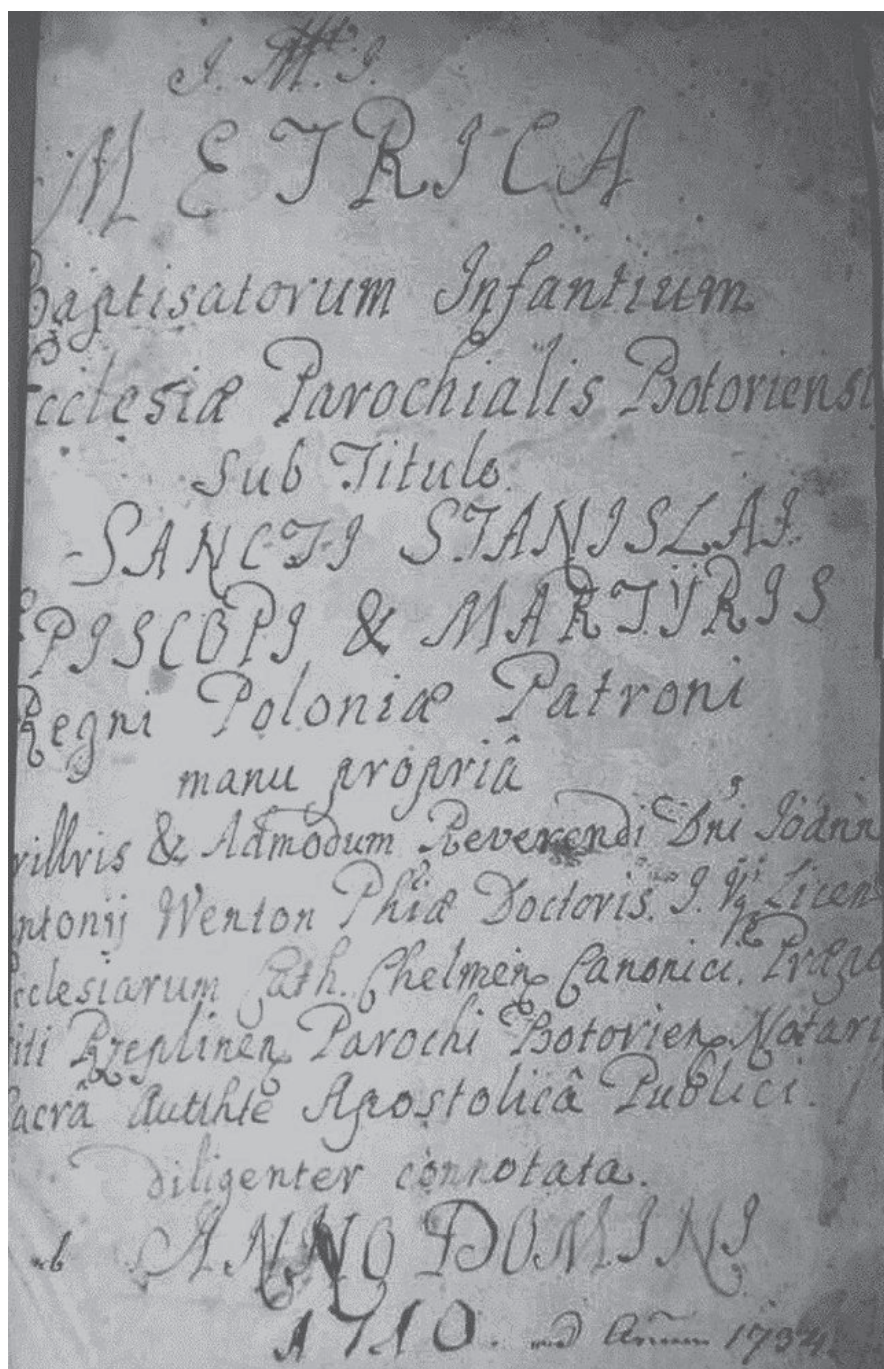 J. M. J.
METRICA
Baptisatorum Infantium
Ecclesiæ Parochialis Botoriensi
Sub Titulo
SANCTI STANISLAI
EPISCOPI & MARTYRIS
Regni Poloniæ Patroni
manu propriâ
rillris & Admodum Reverendi Dni Joann
ntonij Wenton Phiæ Doctoris. J. V. Licen
cclesiarum Cath. Chelmen Canonici. Præpo
iti Rzeplinen Parochi Botorien Notari
acrâ Autthte Apostolicâ Publici.
diligenter connotata.
ab ANNO DOMINI
1710. ad Annum 1734.